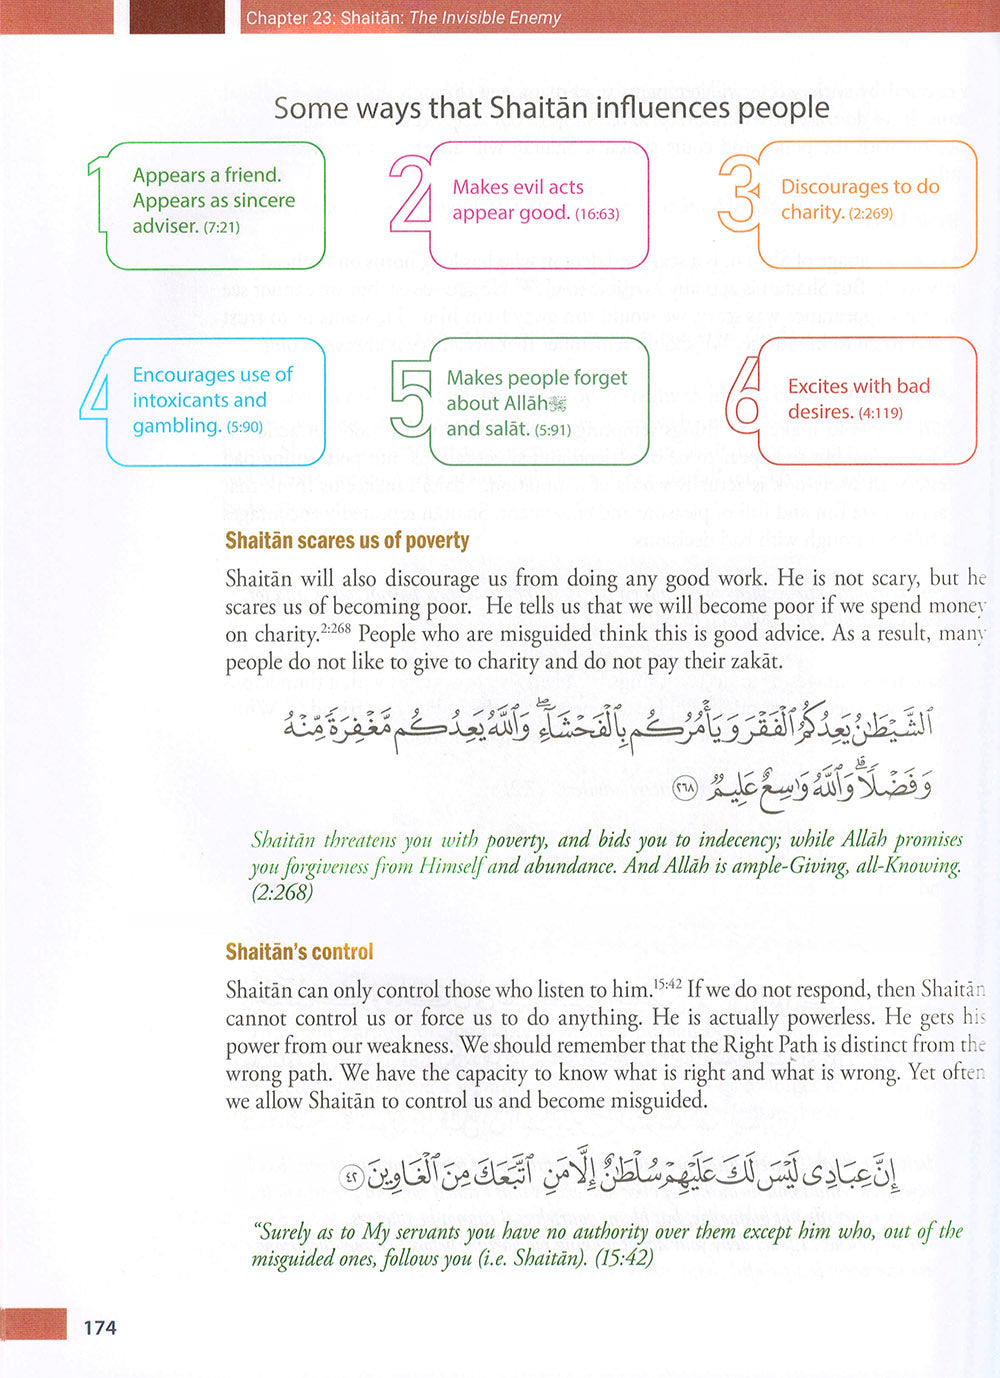 Chapter 23: Shaitān: The Invisible Enemy
Some ways that Shaitān influences people
1
Appears a friend.
Appears as sincere
adviser. (7:21)
2
Makes evil acts
appear good. (16:63)
3
Discourages to do
charity. (2:269)
4
Encourages use of
intoxicants and
gambling. (5:90)
5
Makes people forget
about Allāhﷻ
and salāt. (5:91)
6
Excites with bad
desires. (4:119)
Shaitān scares us of poverty
Shaitān will also discourage us from doing any good work. He is not scary, but he
scares us of becoming poor. He tells us that we will become poor if we spend money
on charity.2:268 People who are misguided think this is good advice. As a result, many
people do not like to give to charity and do not pay their zakāt.
ٱلشَّيْطَٰنُ يَعِدُكُمُ ٱلْفَقْرَ وَيَأْمُرُكُم بِٱلْفَحْشَآءِ ۖ وَٱللَّهُ يَعِدُكُم مَّغْفِرَةً مِّنْهُ
وَفَضْلًا ۗ وَٱللَّهُ وَٰسِعٌ عَلِيمٌ ٢٦٨
Shaitān threatens you with poverty, and bids you to indecency; while Allāh promises
you forgiveness from Himself and abundance. And Allāh is ample-Giving, all-Knowing.
(2:268)
Shaitān’s control
Shaitān can only control those who listen to him.15:42 If we do not respond, then Shaitān
cannot control us or force us to do anything. He is actually powerless. He gets his
power from our weakness. We should remember that the Right Path is distinct from the
wrong path. We have the capacity to know what is right and what is wrong. Yet often
we allow Shaitān to control us and become misguided.
إِنَّ عِبَادِى لَيْسَ لَكَ عَلَيْهِمْ سُلْطَٰنٌ إِلَّا مَنِ ٱتَّبَعَكَ مِنَ ٱلْغَاوِينَ ٤٢
“Surely as to My servants you have no authority over them except him who, out of the
misguided ones, follows you (i.e. Shaitān). (15:42)
174